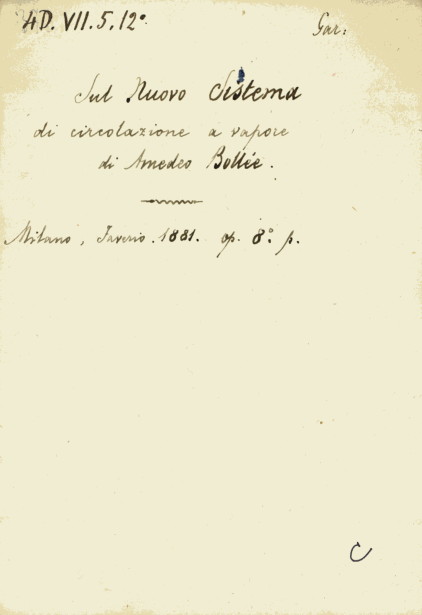 4D. VII. 5. 12°.
Gar:
Sul Nuovo Sistema
di circolazione a vapore
di Amedeo Bollée.
Milano, Saverio. 1881. op. 8.° p.
C